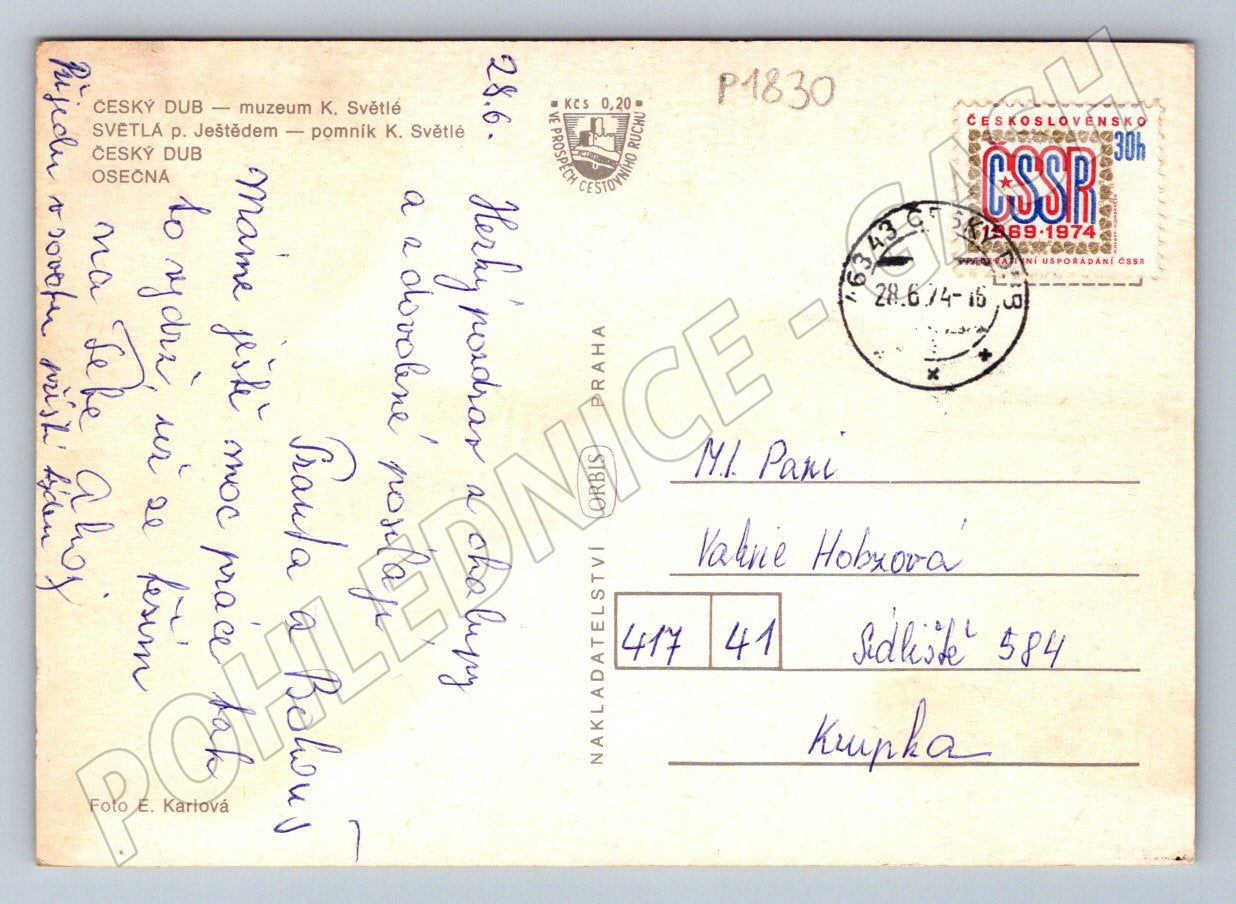 ČESKÝ DUB — muzeum K. Světlé
SVĚTLÁ p. Ještědem — pomník K. Světlé
ČESKÝ DUB
OSEČNÁ
Kčs 0,20
VE PROSPĚCH CESTOVNÍHO RUCHU
P1830
ČESKOSLOVENSKO
30h
ČSSR
1969·1974
FEDERATIVNÍ USPOŘÁDÁNÍ ČSSR
46343 ČESKÝ DUB
28.6.74-16
28.6.
Hezký pozdrav z chalupy
a z dovolené posílají
Franta a Bohouš
Máme ještě moc práce tak
to vydrž, už se těším
na Tebe Ahoj
Přijedu v sobotu příští týden
NAKLADATELSTVÍ ORBIS PRAHA
Ml. Paní
Hobzová
417 41 Sídliště 584
Krupka
Foto E. Karlová
POHLEDNICE - GASH